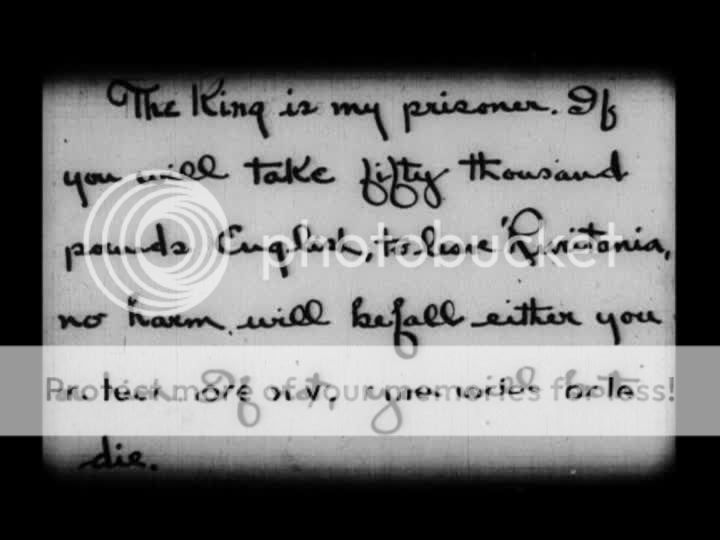 The King is my prisoner. If
you will take fifty thousand
pounds English, to leave Ruritania,
photobucket
no harm will befall either you
If
Protect more of your memories for less!
die.